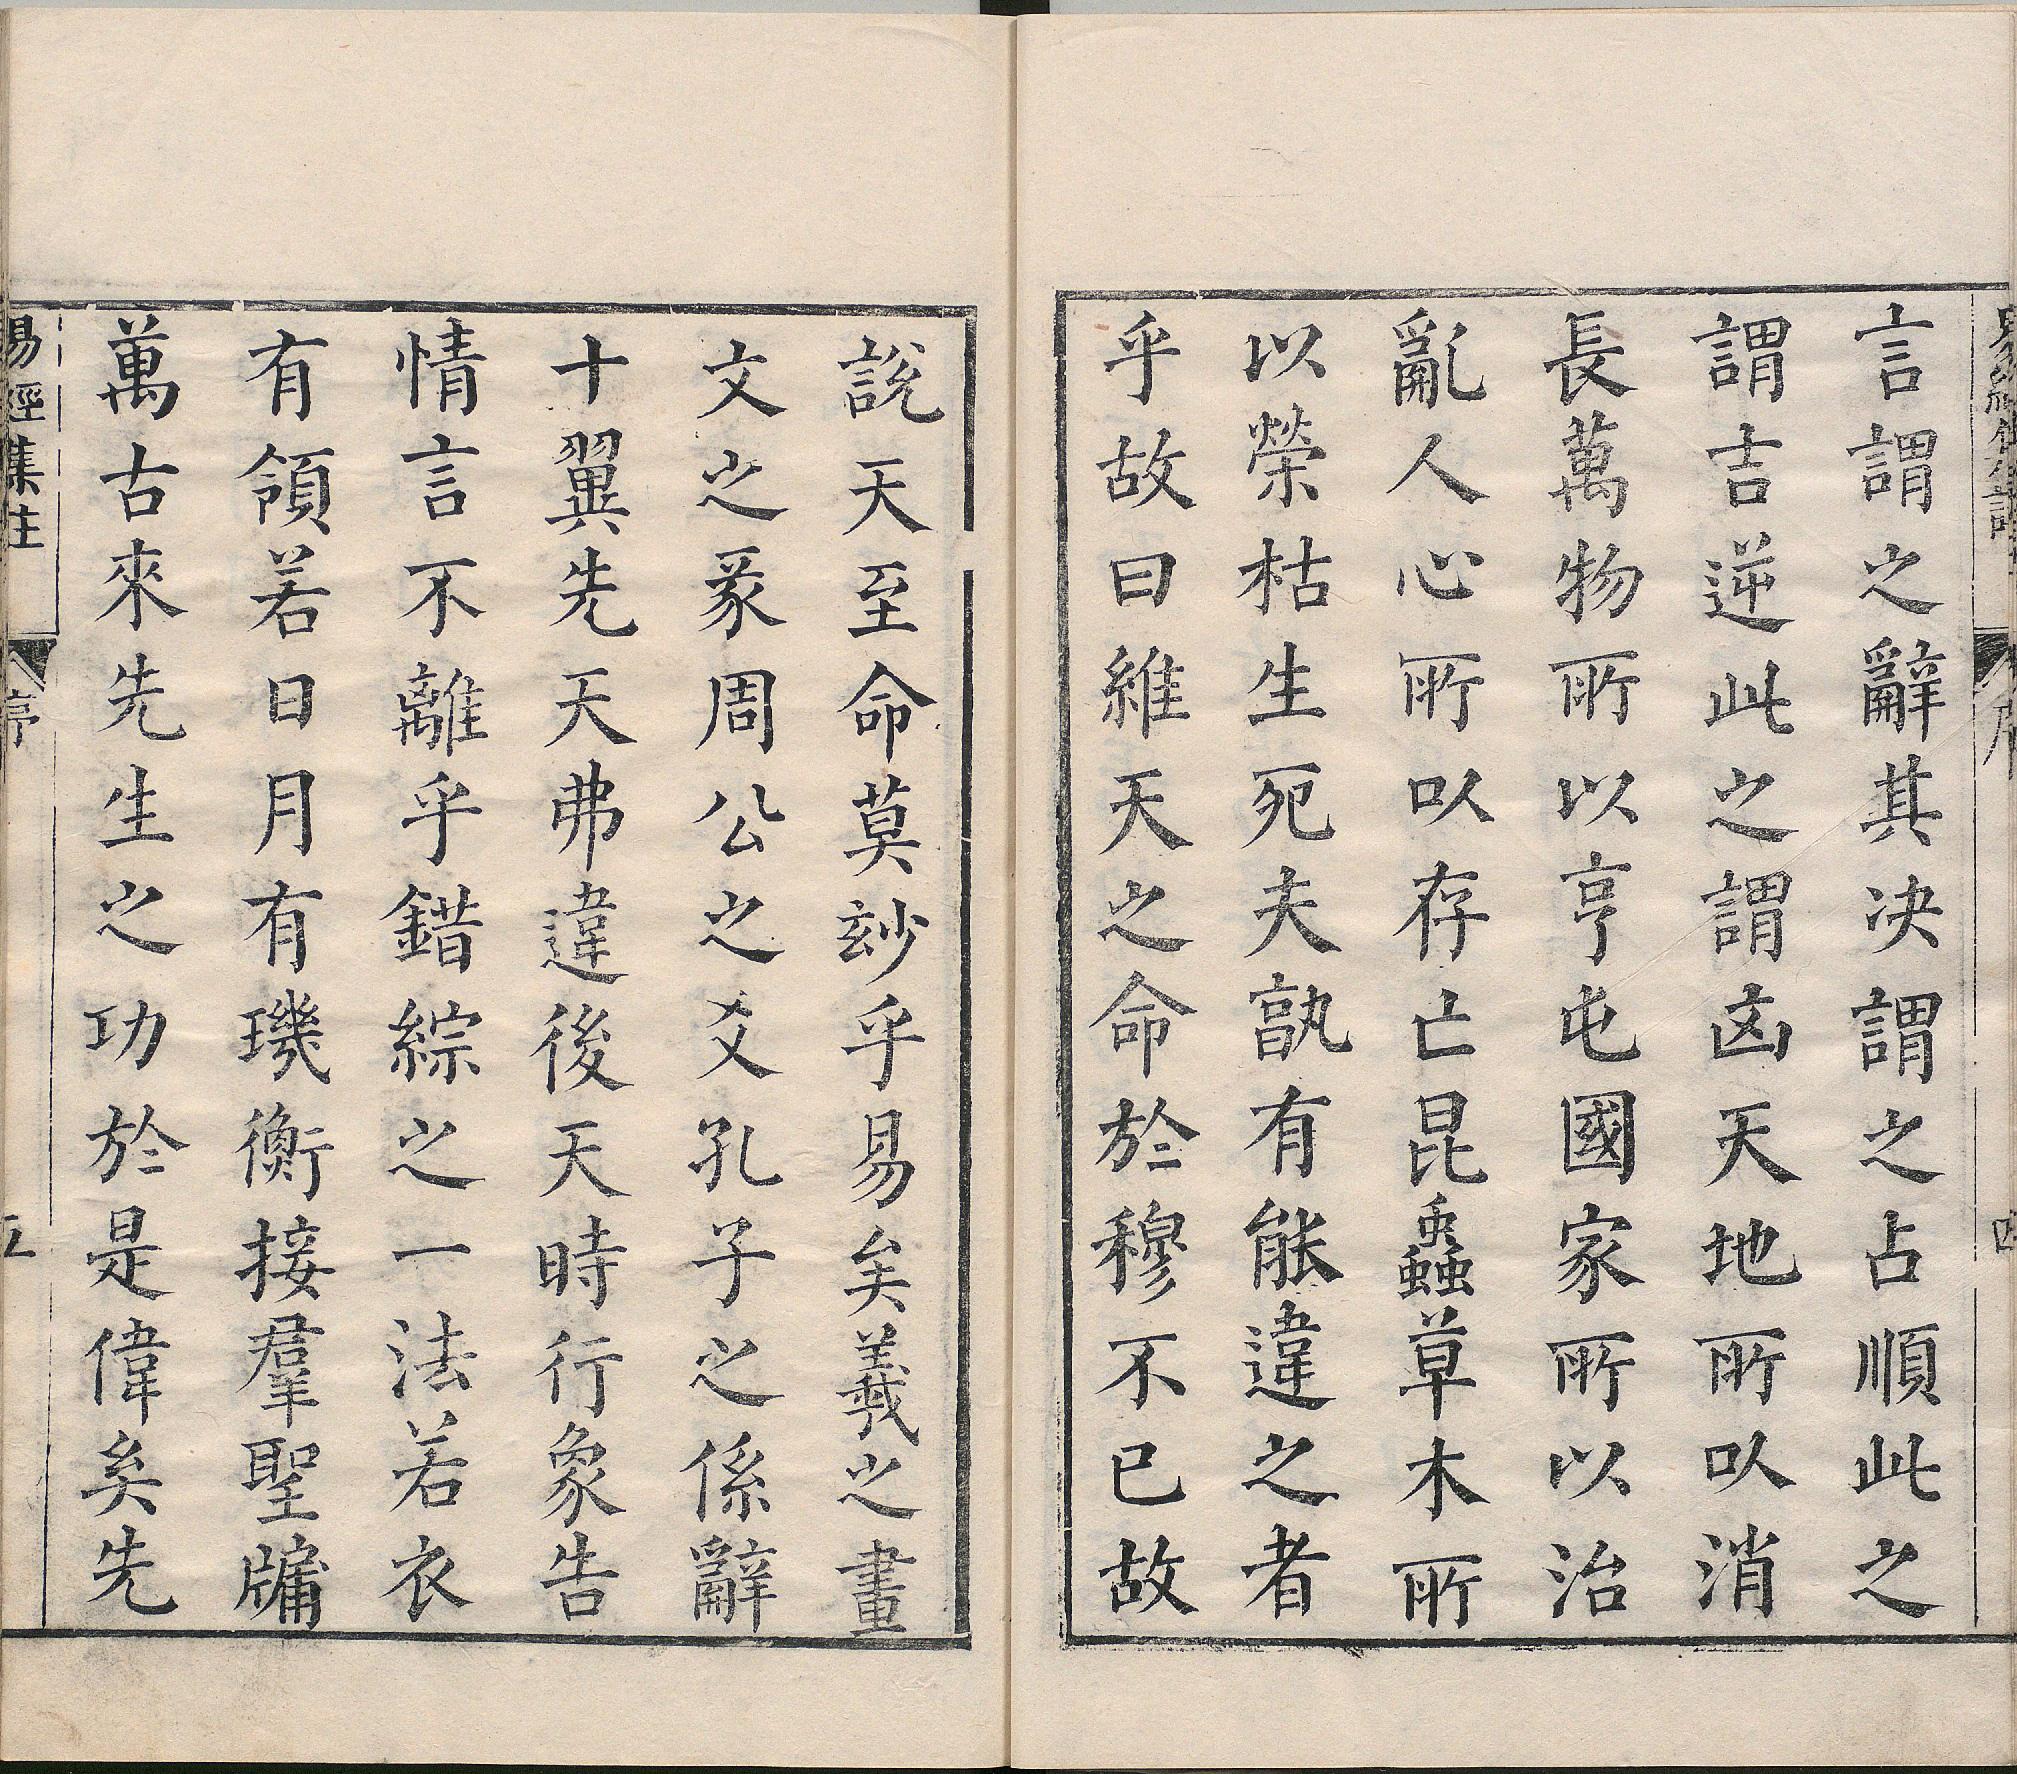 易經集註 序 四
言謂之辭其决謂之占順此之
謂吉逆此之謂凶天地所以消
長萬物所以亨屯國家所以治
亂人心所以存亡昆蟲草木所
以榮枯生死夫孰有能違之者
乎故曰維天之命於穆不已故
說天至命莫玅乎易矣羲之畫
文之彖周公之爻孔子之係辭
十翼先天弗違後天時行象告
情言不離乎錯綜之一法若衣
有領若日月有璣衡接羣聖牖
萬古來先生之功於是偉矣先
易經集注 序 五